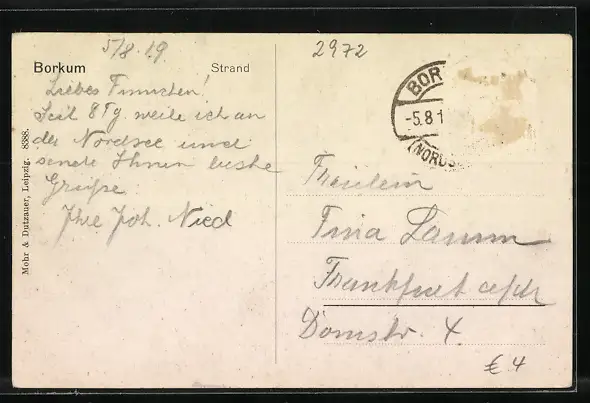 5/8.19
2972
Borkum Strand
Liebes Finnchen!
Seit 8 Tg. weile ich an
der Nordsee und
sende Ihnen beste
Grüße
Ihre Joh. Nied
Mohr & Dutzauer, Leipzig. 8588.
BOR
-5.8.1
(NORDS
Fräulein
Tina Lamm
Frankfurt a/M
Domstr. 4.
€ 4